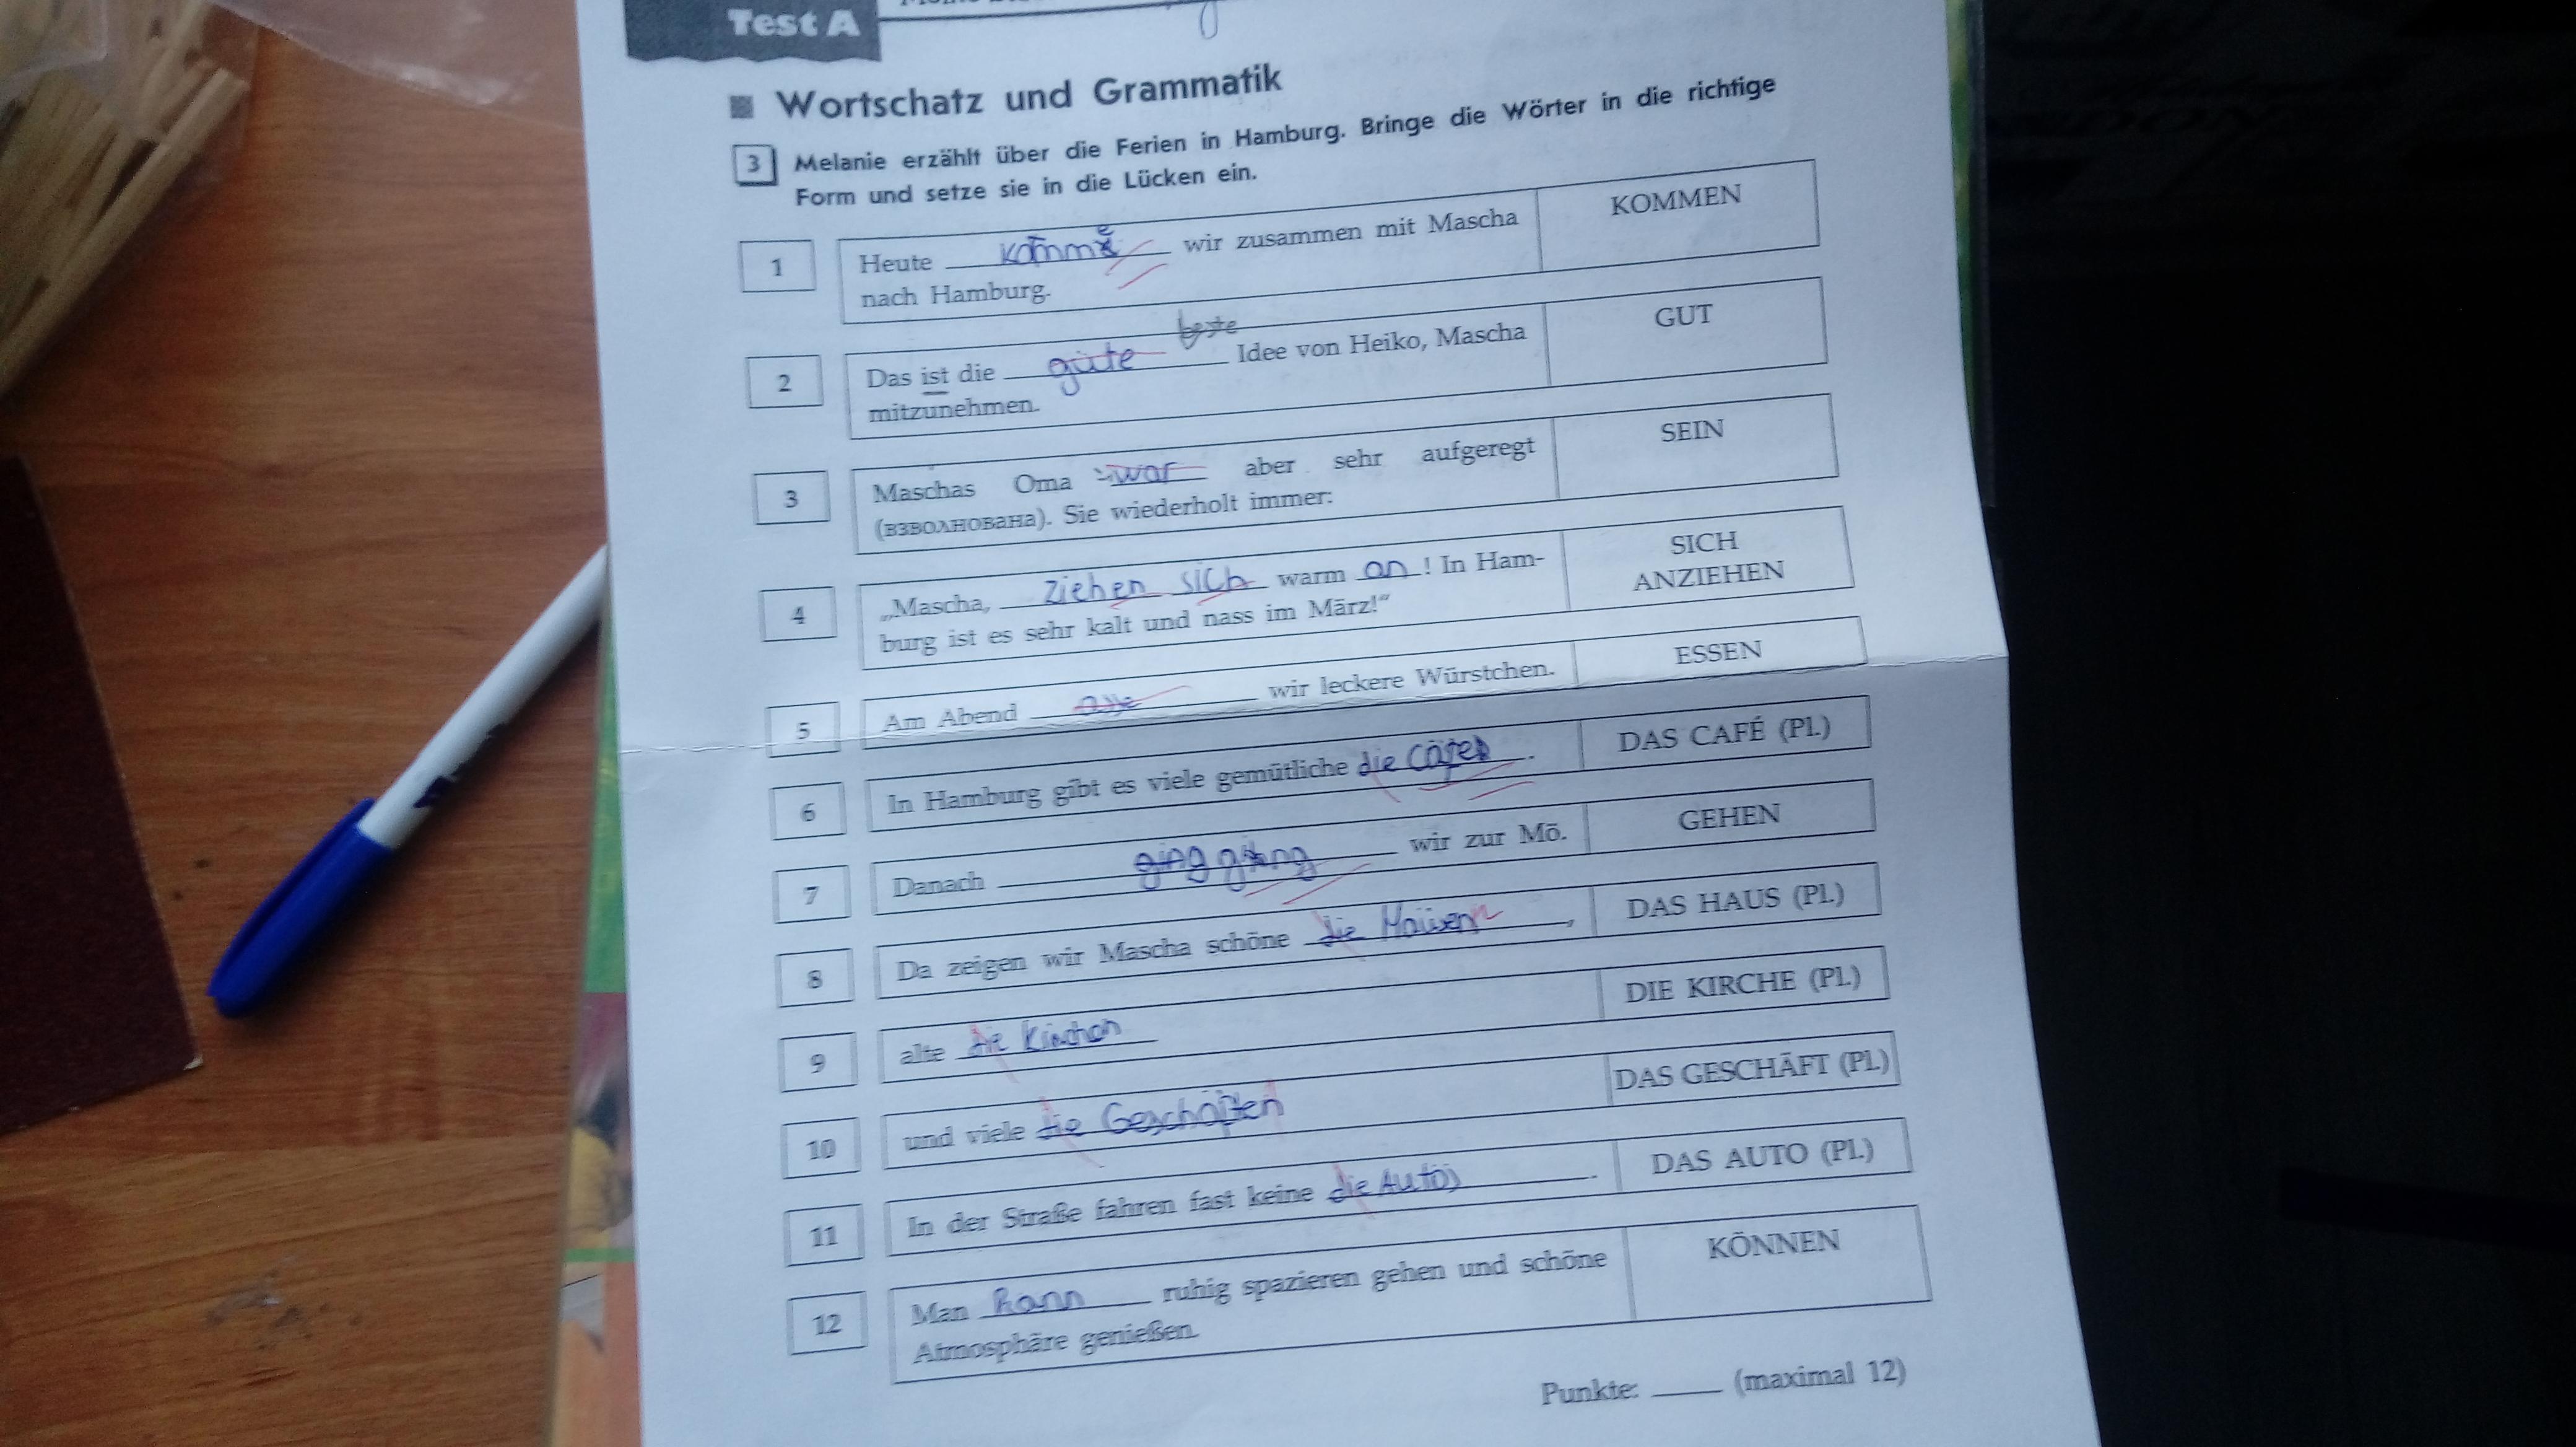 Test A
Wortschatz und Grammatik
3 Melanie erzählt über die Ferien in Hamburg. Bringe die Wörter in die richtige
Form und setze sie in die Lücken ein.
1 Heute komme wir zusammen mit Mascha KOMMEN
nach Hamburg.
2 Das ist die gute beste Idee von Heiko, Mascha GUT
mitzunehmen.
3 Maschas Oma war aber sehr aufgeregt SEIN
(взволнована). Sie wiederholt immer:
4 „Mascha, ziehen sich warm an! In Ham- SICH
burg ist es sehr kalt und nass im März!“ ANZIEHEN
5 Am Abend wir leckere Würstchen. ESSEN
6 In Hamburg gibt es viele gemütliche die . DAS CAFÉ (Pl.)
7 Danach ging wir zur Mö. GEHEN
8 Da zeigen wir Mascha schöne die , DAS HAUS (Pl.)
9 alte die Kirchen DIE KIRCHE (Pl.)
10 und viele die Geschäften DAS GESCHÄFT (Pl.)
11 In der Straße fahren fast keine die Autos . DAS AUTO (Pl.)
12 Man kann ruhig spazieren gehen und schöne KÖNNEN
Atmosphäre genießen.
Punkte: ____ (maximal 12)